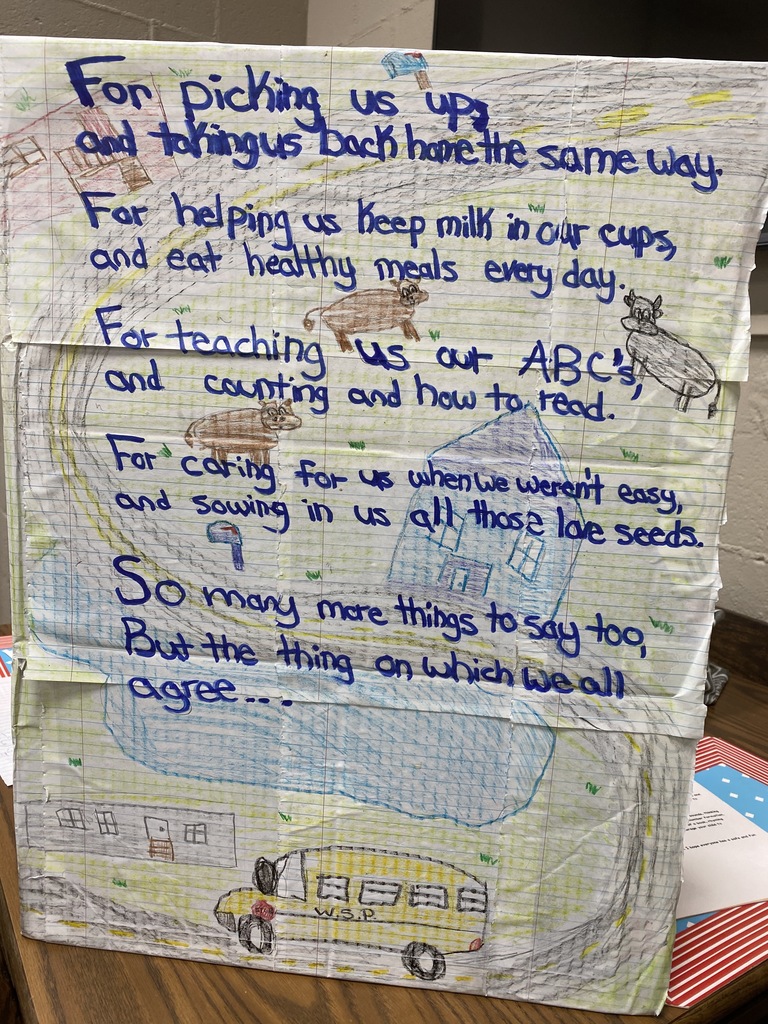 For picking us up,
and taking us back home the same way.
For helping us keep milk in our cups,
and eat healthy meals every day.
For teaching us our ABC's,
and counting and how to read.
For caring for us when we weren't easy,
and sowing in us all those love seeds.
So many more things to say too,
But the thing on which we all
agree....
W.S.P.